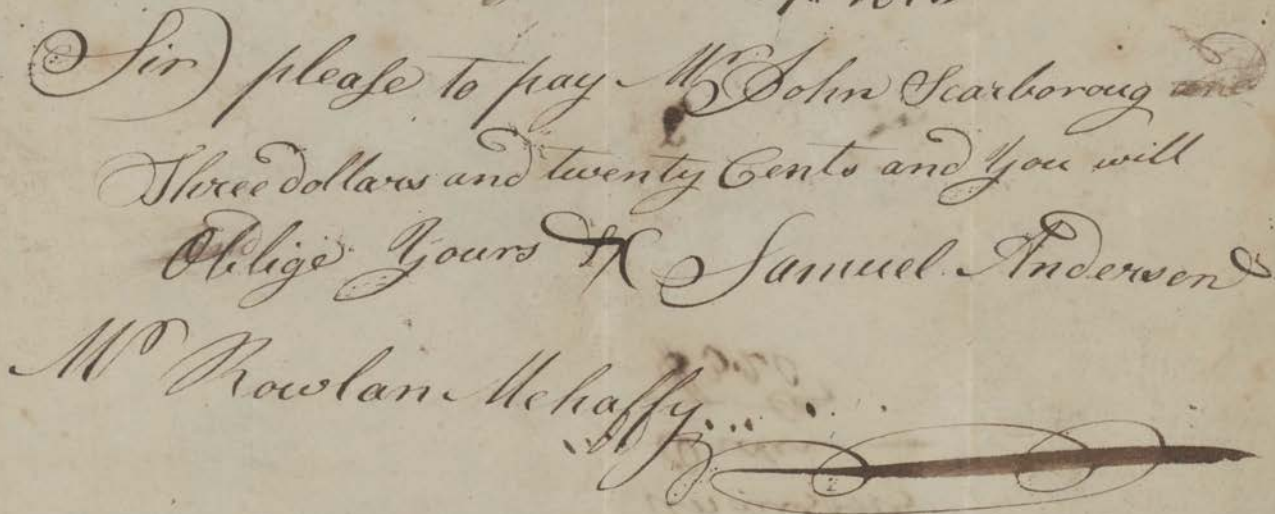 Sir please to pay Mr John Scarboroug
Three dollars and twenty Cents and you will
Oblige Yours &c Samuel Anderson
Mr Rowlan Mehaffy